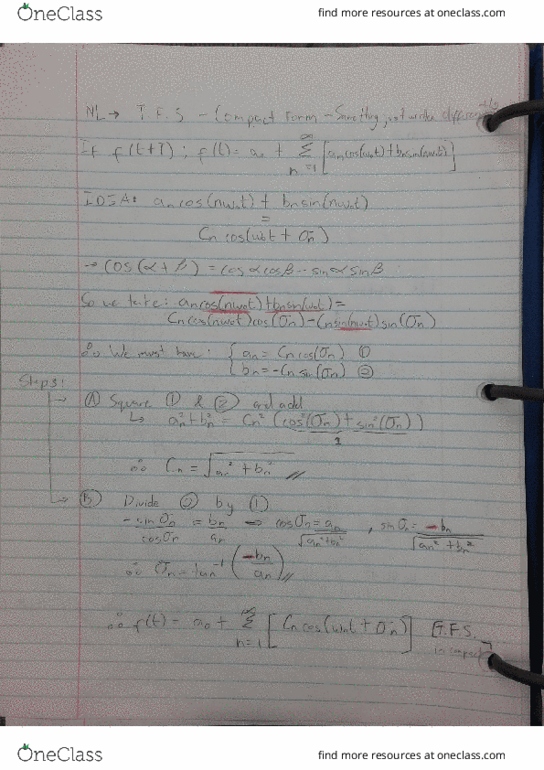 OneClass
find more resources at oneclass.com
NL → T.F.S - Compact Form - Something, not written differently
If f(t+T); f(t) = a₀ + ∞Σn=1 [aₙcos(ω₀t)+bₙsin(nω₀t)]
IDEA: aₙ cos(nω₀t) + bₙ sin(nω₀t)
=
Cₙ cos(ω₀t + θₙ)
→ cos(α+β) = cosαcosβ - sinαsinβ
So we take: aₙcos(nω₀t)+bₙsin(ω₀t) =
Cₙcos(nω₀t)cos(θₙ)-Cₙsin(nω₀t)sin(θₙ)
∴ We must have: { aₙ = Cₙcos(θₙ) ①
bₙ = -Cₙ sin(θₙ) ②
Steps:
Ⓐ Square ① & ② and add
↳ aₙ²+bₙ² = Cₙ² (cos²(θₙ)+sin²(θₙ))
1
∴ Cₙ = √aₙ² + bₙ² //
Ⓑ Divide ② by ①
-sinθₙ/cosθₙ = bₙ/aₙ ⇒ cosθₙ = aₙ/√aₙ²+bₙ² , sinθₙ = -bₙ/√aₙ²+bₙ²
∴ θₙ = tan⁻¹(-bₙ/aₙ) //
∴ f(t) = a₀ + ∞Σn=1 [Cₙcos(ω₀t + θₙ)] [T.F.S.
in compact]
OneClass
find more resources at oneclass.com